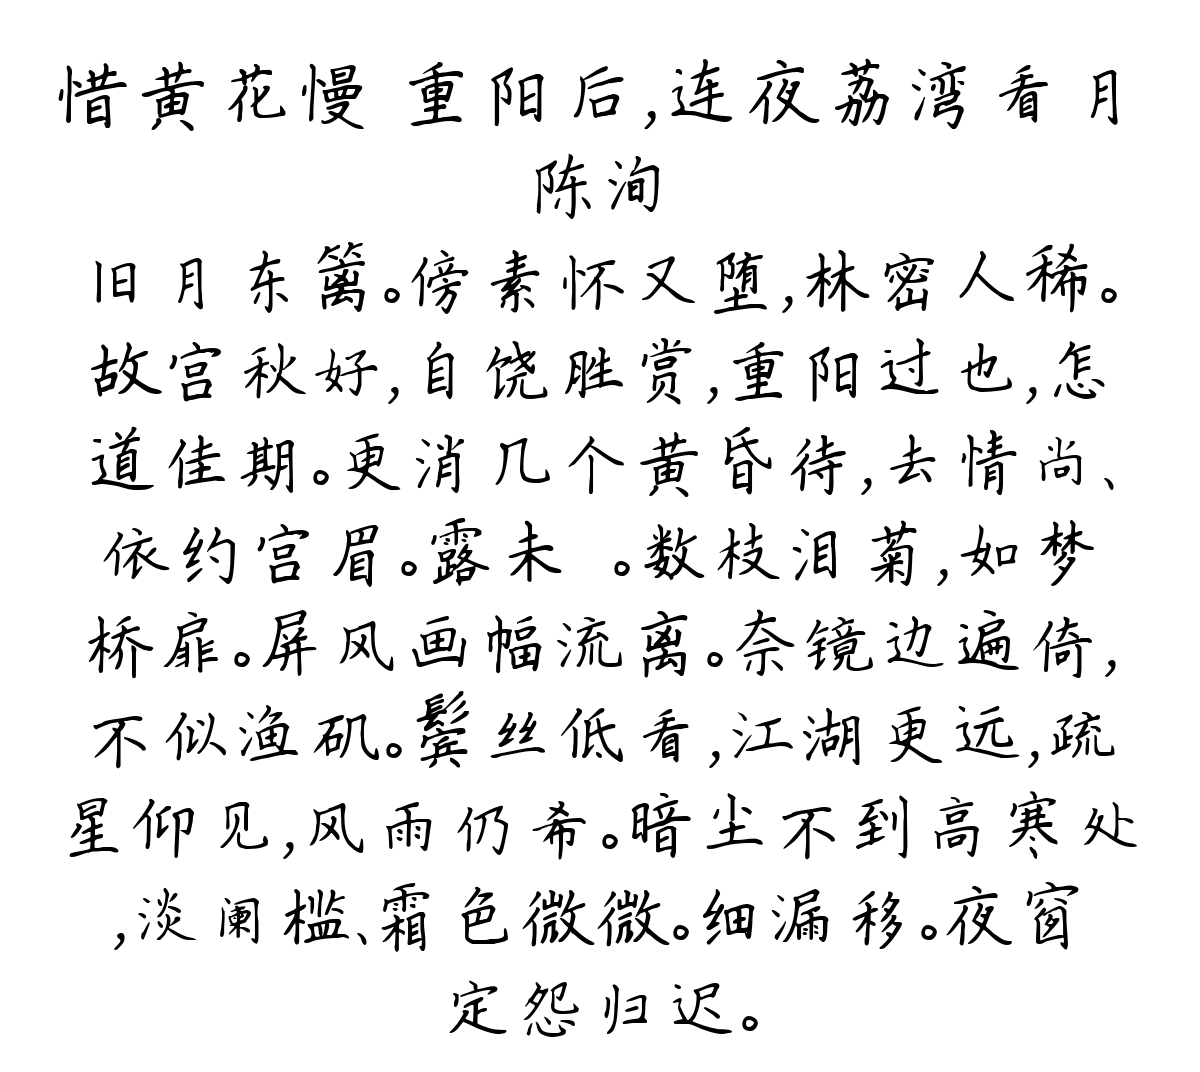 惜黄花慢 重阳后,连夜荔湾看月
陈洵
旧月东篱。傍素怀又堕,林密人稀。
故宫秋好,自饶胜赏,重阳过也,怎
道佳期。更消几个黄昏待,去情尚、
依约宫眉。露未 。数枝泪菊,如梦
桥扉。屏风画幅流离。奈镜边遍倚,
不似渔矶。鬓丝低看,江湖更远,疏
星仰见,风雨仍希。暗尘不到高寒处
,淡阑槛、霜色微微。细漏移。夜窗
定怨归迟。